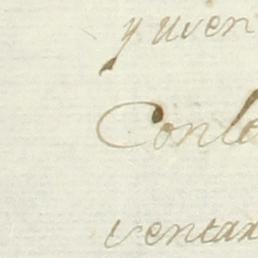 y uven
Conle
ventax